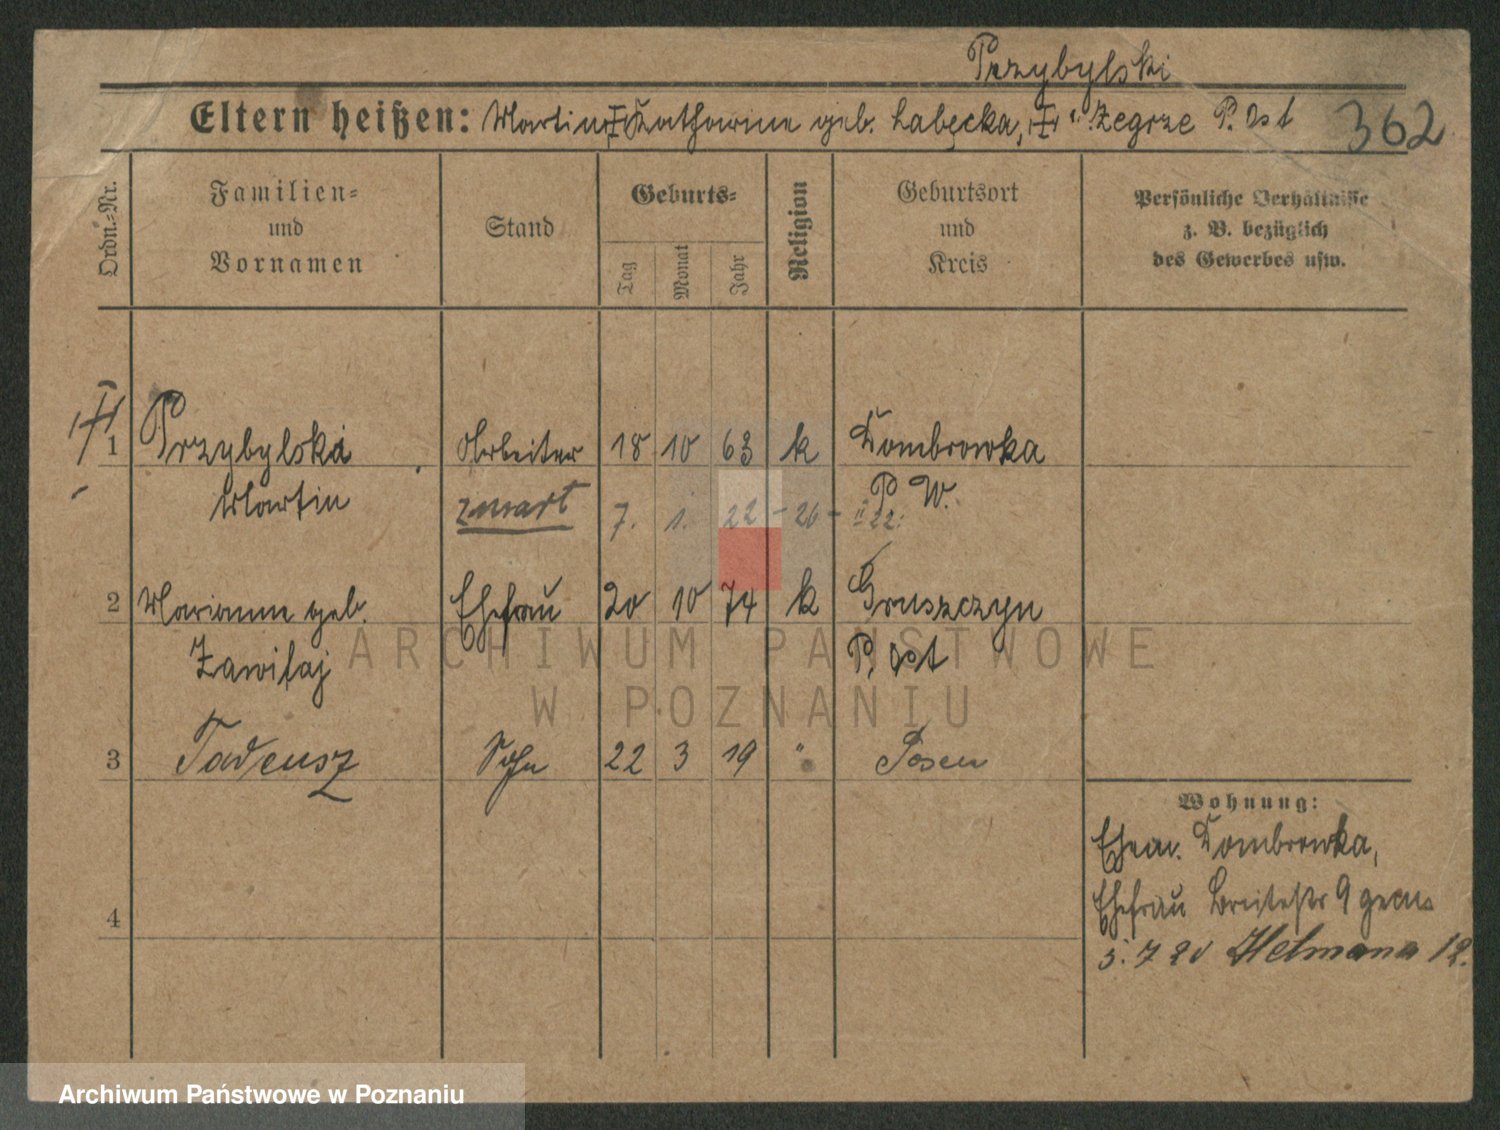 Przybylski
Eltern heißen: Martin, Katharine geb. Łabęcka, Zegrze P. Ost 362
Ordn.-Nr.
Familien-
und
Vornamen
Stand
Geburts-
Tag
Monat
Jahr
Religion
Geburtsort
und
Kreis
Persönliche Verhältnisse
z. B. bezüglich
des Gewerbes usw.
1 Przybylski Arbeiter 18 10 63 k Dombrowka
Martin zmarł 7. 1. 22 - 26 - II 22. P. W.
2 Marianne geb. Ehefrau 20 10 74 k Gruszczyn
Zawifaj P. Ost
3 Tadeusz Sohn 22 3 19 " Posen
4
Wohnung:
Ehem. Dombrowka,
Ehefrau Breitestr 9 gem.
5. 7 20 Helmana 12.
ARCHIWUM PAŃSTWOWE
W POZNANIU
Archiwum Państwowe w Poznaniu